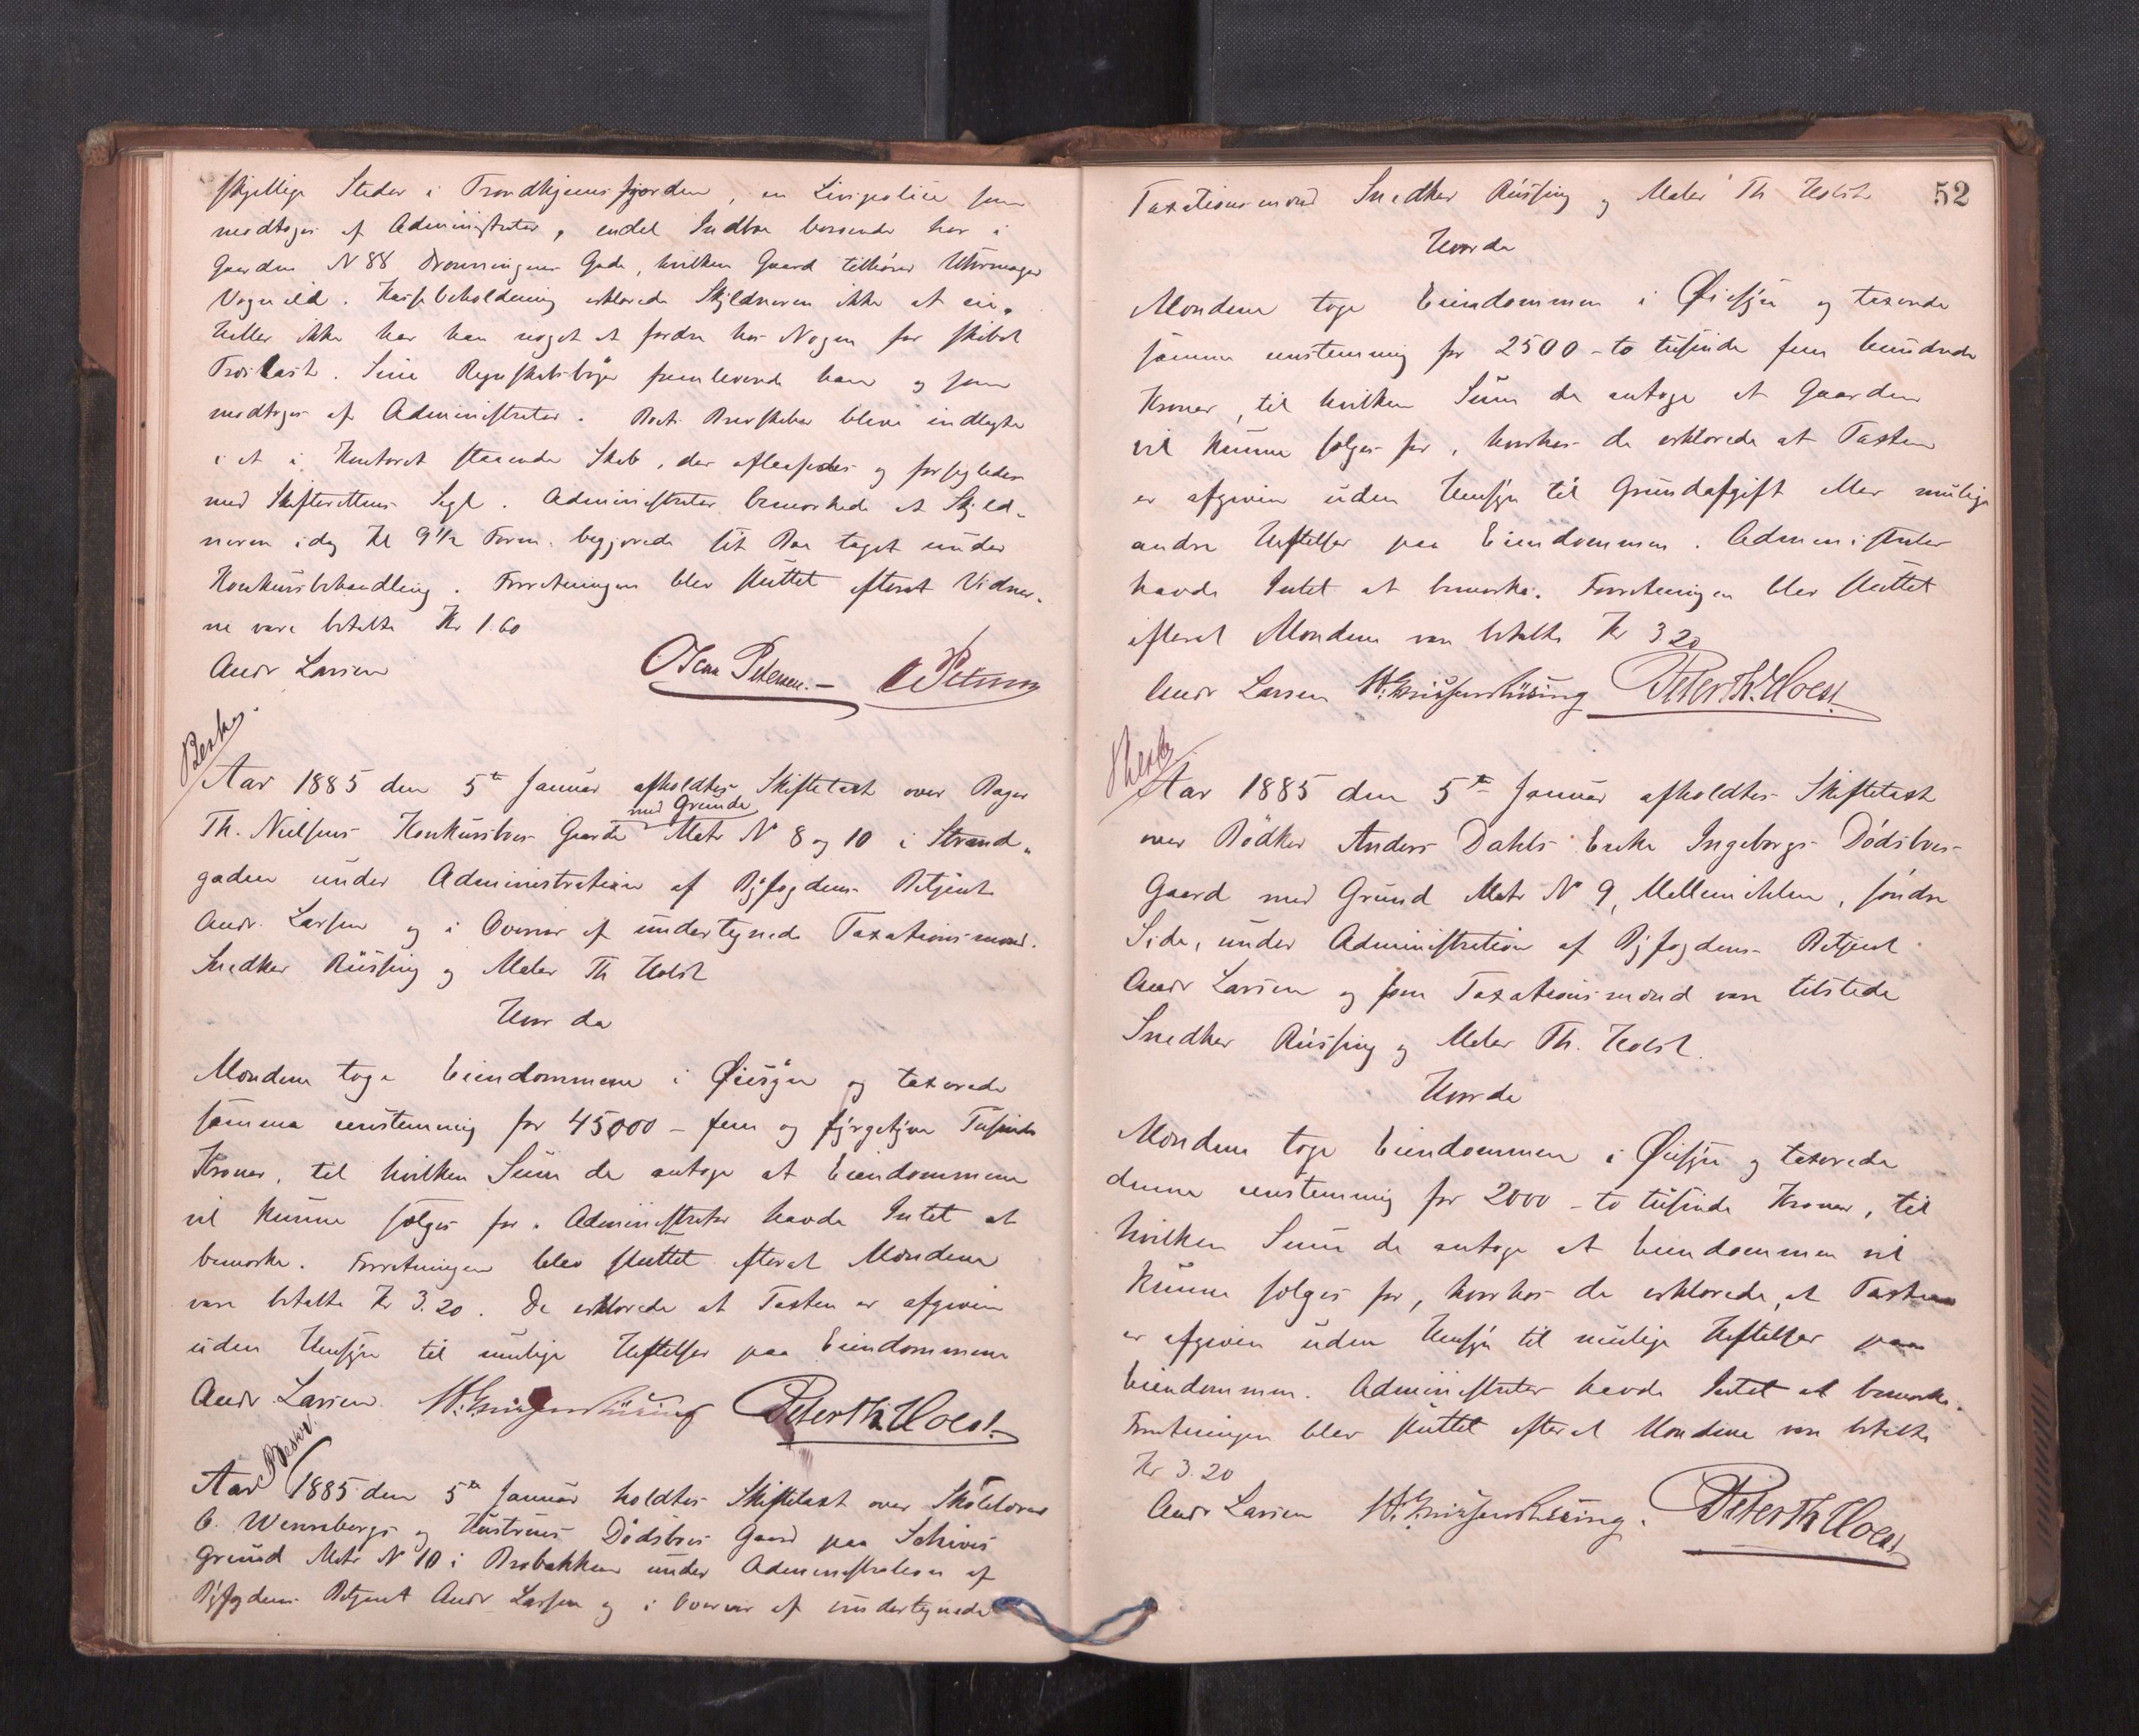 skjellige Steder i Trondhjemsfjorden, en Livspolice som
modtoges af Administrator, endel Indbo beroende her i
Gaarden N 88 Dronningens Gade, hvilken Gaard tilhører Uhrmager
Vognild. Kassebeholdning erklærede Skyldneren ikke at eie,
Heller ikke har han noget at fordre hos Nogen for Skibet
Trofast. Sine Regnskabsbøger fremleverede han og som
modtoges af Administrator. Boets Brevskaber bleve indlagte
i et i Kontoret staaende Skab, der aflaasedes og forsegledes
med Skifterettens Segl. Administrator bemærkede at Skyld-
neren idag Kl 9½ Form. begjærede sit Bo taget under
Konkursbehandling. Forretningen blev sluttet efterat Vidner-
ne vare betalte Kr 1.60
Andr Larsen Oscar Petersen.
Besk.
Aar 1885 den 5te Januar afholdtes Skiftetaxt over Bager
med Grunde
Th. Nielsens Konkursboes Gaarde Matr N 8 og 10 i Strand-
gaden under Administration af Byfogdens Betjent
Andr. Larsen og i Overvær af undertegnede Taxationsmænd.
Snedker Rüssing og Maler Th Holst
Hvor da
Mændene toge Eiendommene i Øiesyn og taxerede
samme enstemmig for 45000 - fem og fyrgetyve Tusinde
Kroner, til hvilken Sum de antoge at Eiendommene
vil kunne sælges for. Administrator havde Intet at
bemærke. Forretningen blev sluttet efterat Mændene
vare betalte Kr 3.20. De erklærede at Taxten er afgiven
uden Hensyn til mulige Heftelser paa Eiendommene
Andr. Larsen Peter Th. Holst.
Beskr.
Aar 1885 den 5te Januar holdtes Skiftetaxt over Skolelærer
C. Wennebergs og Hustrues Dødsboes Gaard paa
Grund Matr N 10 i Brobakken under Administration af
Byfogdens Betjent Andr Larsen og i Overvær af undertegnede
52
Taxationsmænd Snedker Rüssing og Maler Th Holst
Hvorda
Mændene toge Eiendommen i Øiesyn og taxerede
samme enstemmig for 2500 - to tusinde fem hundrede
Kroner, til hvilken Sum de antoge at Gaarden
vil kunne sælges for, hvorhos de erklærede at Taxten
er afgiven uden Hensyn til Grundafgift eller mulige
andre Heftelser paa Eiendommen. Administrator
havde Intet at bemærke. Forretningen blev sluttet
efterat Mændene vare betalte Kr 3.20
Andr Larsen Peter Th. Holst.
Besk
Aar 1885 den 5te Januar afholdtes Skiftetaxt
over Bødker Anders Dahls Enke Ingeborgs Dødsboes
Gaard med Grund Matr N 9, Mellemikhlen, søndre
Side, under Administration af Byfogdens Betjent
Andr Larsen og som Taxationsmænd vare tilstede
Snedker Rüssing og Maler Th. Holst.
Hvorda
Mændene toge Eiendommen i Øiesyn og taxerede
denne enstemmig for 2000 - to tusinde Kroner, til
hvilken Sum de antoge at Eiendommen vil
kunne sælges for, hvorhos de erklærede, at Taxten
er afgiven uden Hensyn til mulige Heftelser paa
Eiendommen. Administrator havde Intet at bemærke.
Forretningen blev sluttet efterat Mændene vare betalte
Kr 3.20
Andr Larsen Peter Th Holst